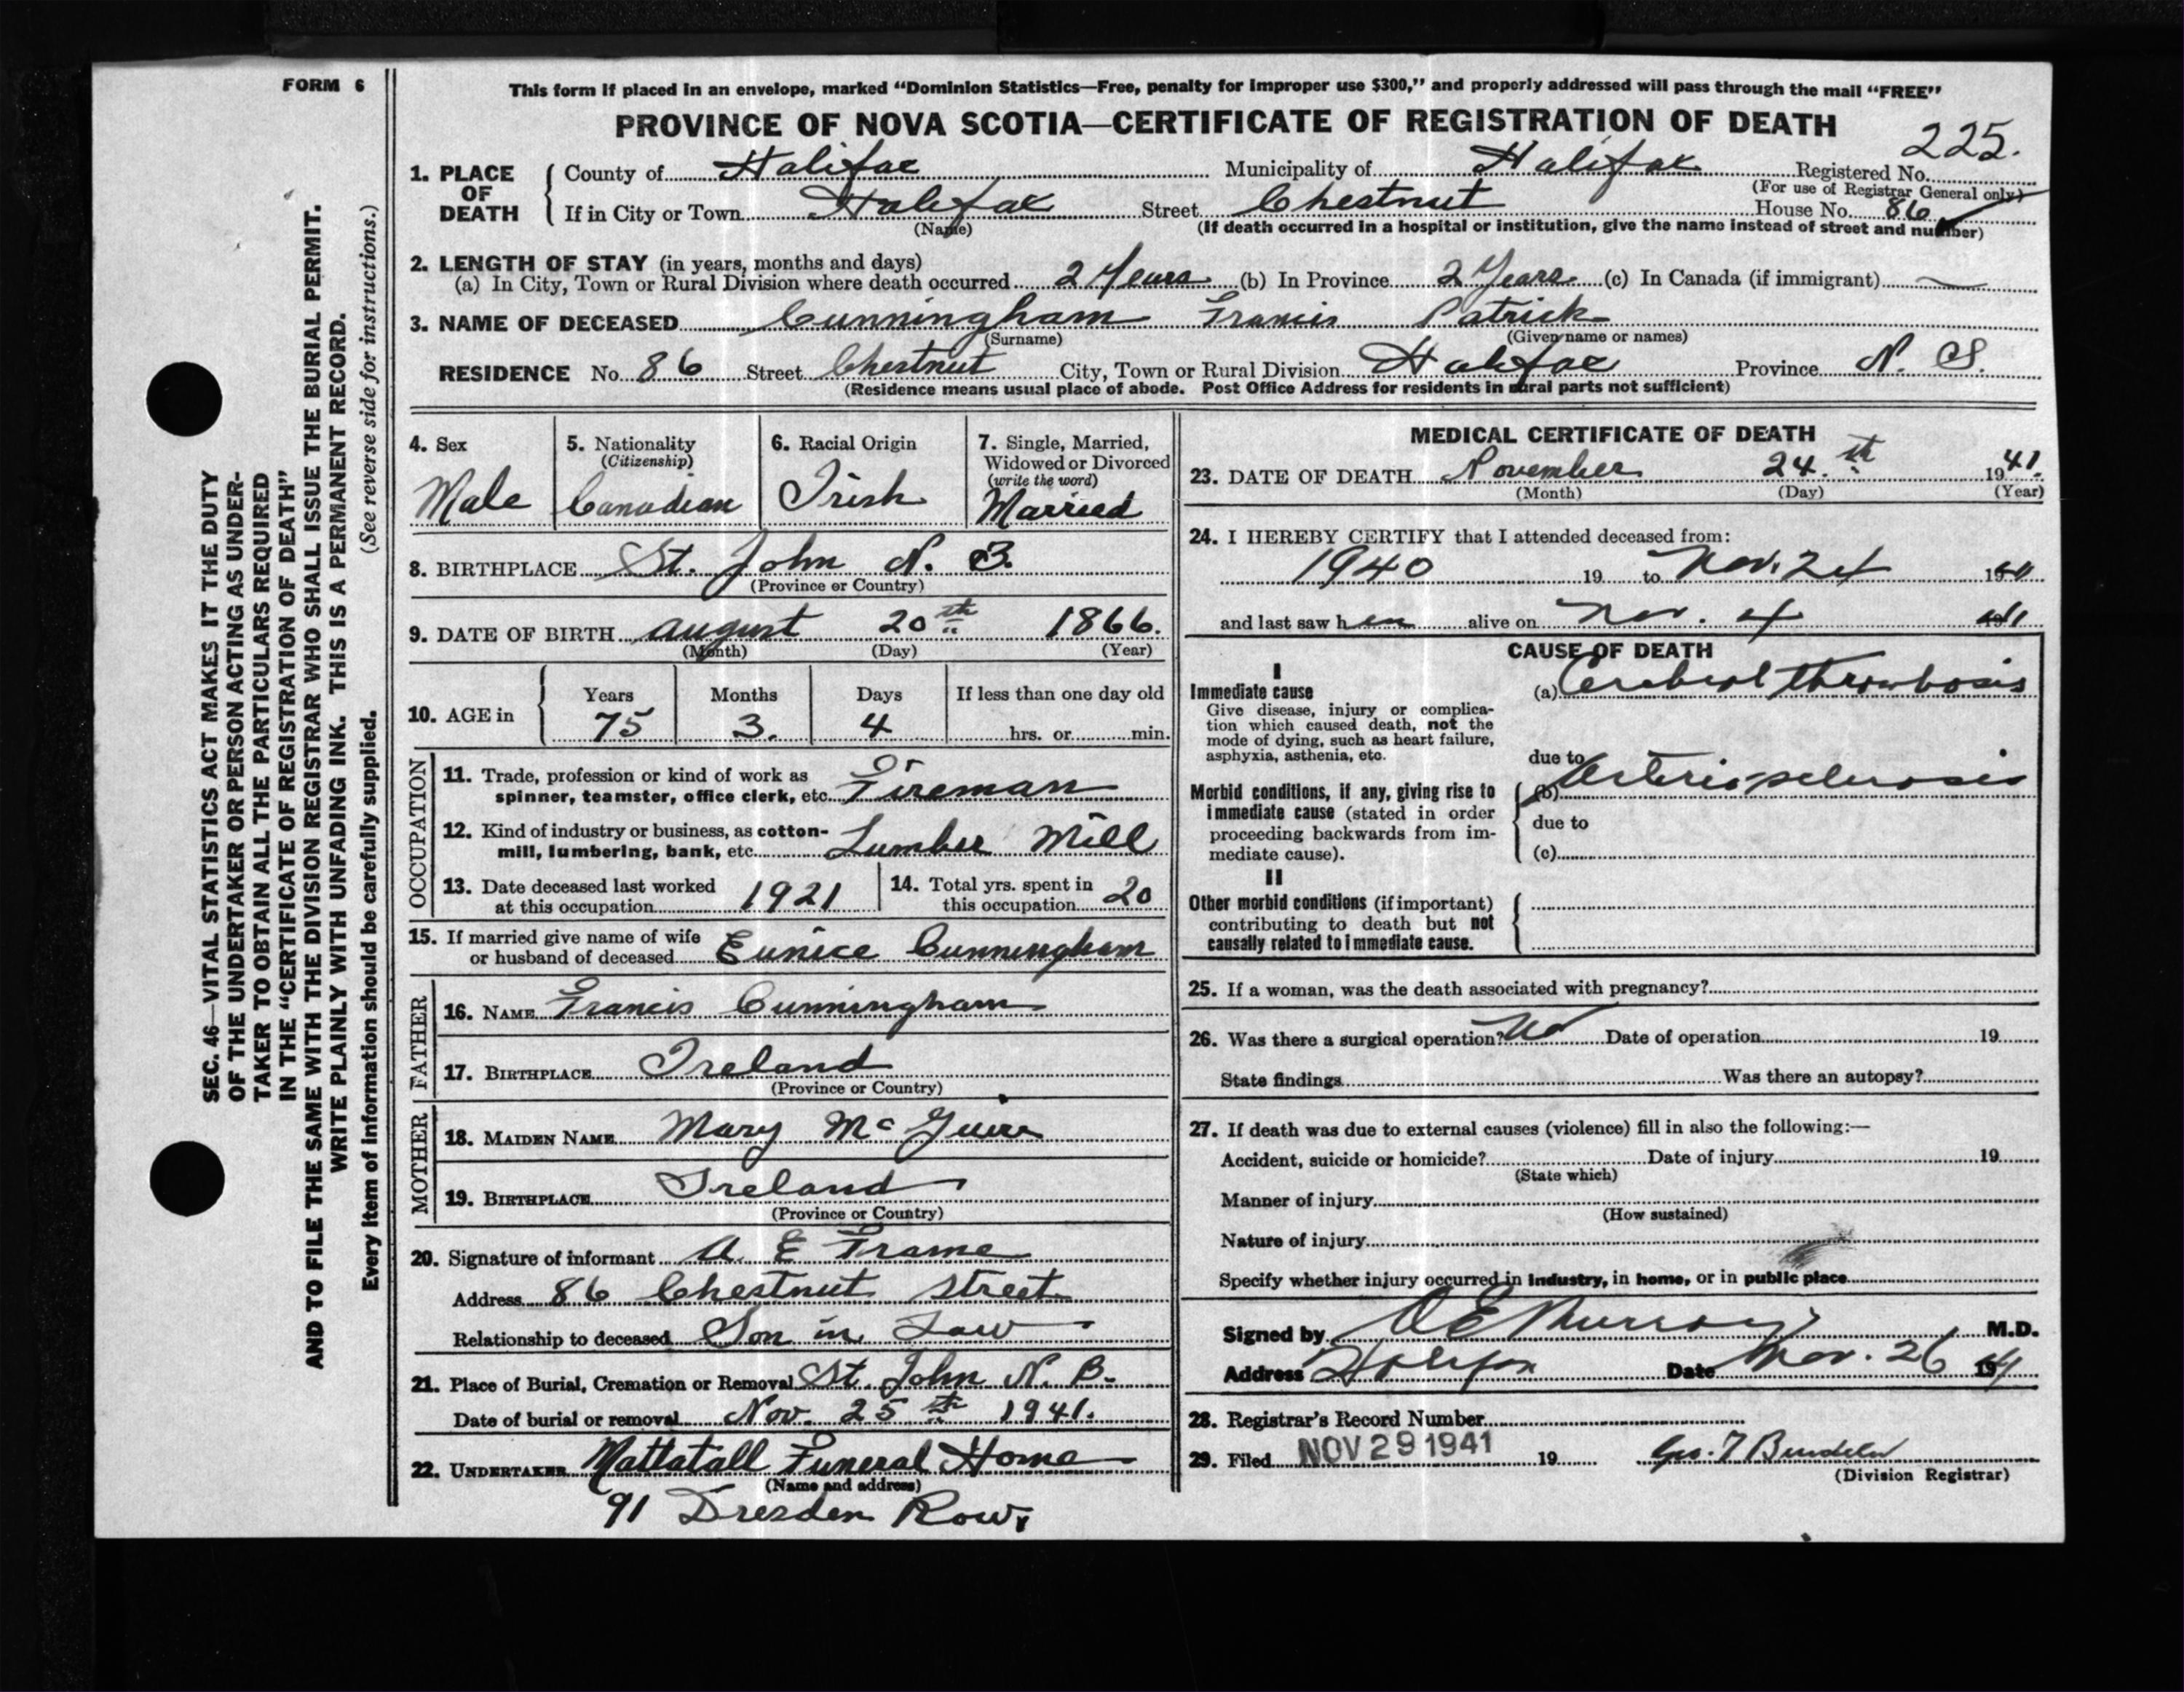 FORM 6
This form if placed in an envelope, marked “Dominion Statistics—Free, penalty for improper use $300,” and properly addressed will pass through the mail “FREE”
PROVINCE OF NOVA SCOTIA—CERTIFICATE OF REGISTRATION OF DEATH
225.
1. PLACE OF DEATH County of Halifax Municipality of Halifax Registered No.
(For use of Registrar General only)
If in City or Town Halifax Street Chestnut House No. 86
(Name) (If death occurred in a hospital or institution, give the name instead of street and number)
2. LENGTH OF STAY (in years, months and days)
(a) In City, Town or Rural Division where death occurred 2 Years (b) In Province 2 Years (c) In Canada (if immigrant) —
3. NAME OF DECEASED Cunningham Francis Patrick
(Surname) (Given name or names)
RESIDENCE No. 86 Street Chestnut City, Town or Rural Division Halifax Province N. S.
(Residence means usual place of abode. Post Office Address for residents in rural parts not sufficient)
4. Sex
Male
5. Nationality
(Citizenship)
Canadian
6. Racial Origin
Irish
7. Single, Married,
Widowed or Divorced
(write the word)
Married
8. BIRTHPLACE St. John N. B.
(Province or Country)
9. DATE OF BIRTH august 20th 1866.
(Month) (Day) (Year)
10. AGE in Years Months Days If less than one day old
75 3. 4 hrs. or min.
OCCUPATION
11. Trade, profession or kind of work as
spinner, teamster, office clerk, etc. Fireman
12. Kind of industry or business, as cotton-
mill, lumbering, bank, etc. Lumber Mill
13. Date deceased last worked
at this occupation 1921
14. Total yrs. spent in
this occupation 20
15. If married give name of wife
or husband of deceased Eunice Cunningham
FATHER
16. NAME Francis Cunningham
17. BIRTHPLACE Ireland
(Province or Country)
MOTHER
18. MAIDEN NAME Mary Mc
19. BIRTHPLACE Ireland
(Province or Country)
20. Signature of informant A E Frame
Address 86 Chestnut Street
Relationship to deceased Son in Law
21. Place of Burial, Cremation or Removal St. John N. B.
Date of burial or removal Nov. 25th 1941.
22. UNDERTAKER Mattatall Funeral Home
(Name and address)
91 Dresden Row.
MEDICAL CERTIFICATE OF DEATH
23. DATE OF DEATH November 24.th 1941.
(Month) (Day) (Year)
24. I HEREBY CERTIFY that I attended deceased from:
1940 19 to Nov. 24 1941
and last saw h alive on Nov. 4 1941
CAUSE OF DEATH
I
Immediate cause (a) Cerebral thrombosis
Give disease, injury or complica-
tion which caused death, not the
mode of dying, such as heart failure,
asphyxia, asthenia, etc. due to
Morbid conditions, if any, giving rise to (b) Arteriosclerosis
immediate cause (stated in order
proceeding backwards from im- due to
mediate cause). (c)
II
Other morbid conditions (if important)
contributing to death but not
causally related to immediate cause.
25. If a woman, was the death associated with pregnancy?
26. Was there a surgical operation? No Date of operation 19
State findings Was there an autopsy?
27. If death was due to external causes (violence) fill in also the following:—
Accident, suicide or homicide? Date of injury 19
(State which)
Manner of injury
(How sustained)
Nature of injury
Specify whether injury occurred in industry, in home, or in public place
Signed by Murray M.D.
Address Halifax Date Nov. 26 1941
28. Registrar's Record Number
29. Filed NOV 29 1941 19 Geo. F
(Division Registrar)
SEC. 46—VITAL STATISTICS ACT MAKES IT THE DUTY
OF THE UNDERTAKER OR PERSON ACTING AS UNDER-
TAKER TO OBTAIN ALL THE PARTICULARS REQUIRED
IN THE “CERTIFICATE OF REGISTRATION OF DEATH”
AND TO FILE THE SAME WITH THE DIVISION REGISTRAR WHO SHALL ISSUE THE BURIAL PERMIT.
WRITE PLAINLY WITH UNFADING INK. THIS IS A PERMANENT RECORD.
Every item of information should be carefully supplied. (See reverse side for instructions.)